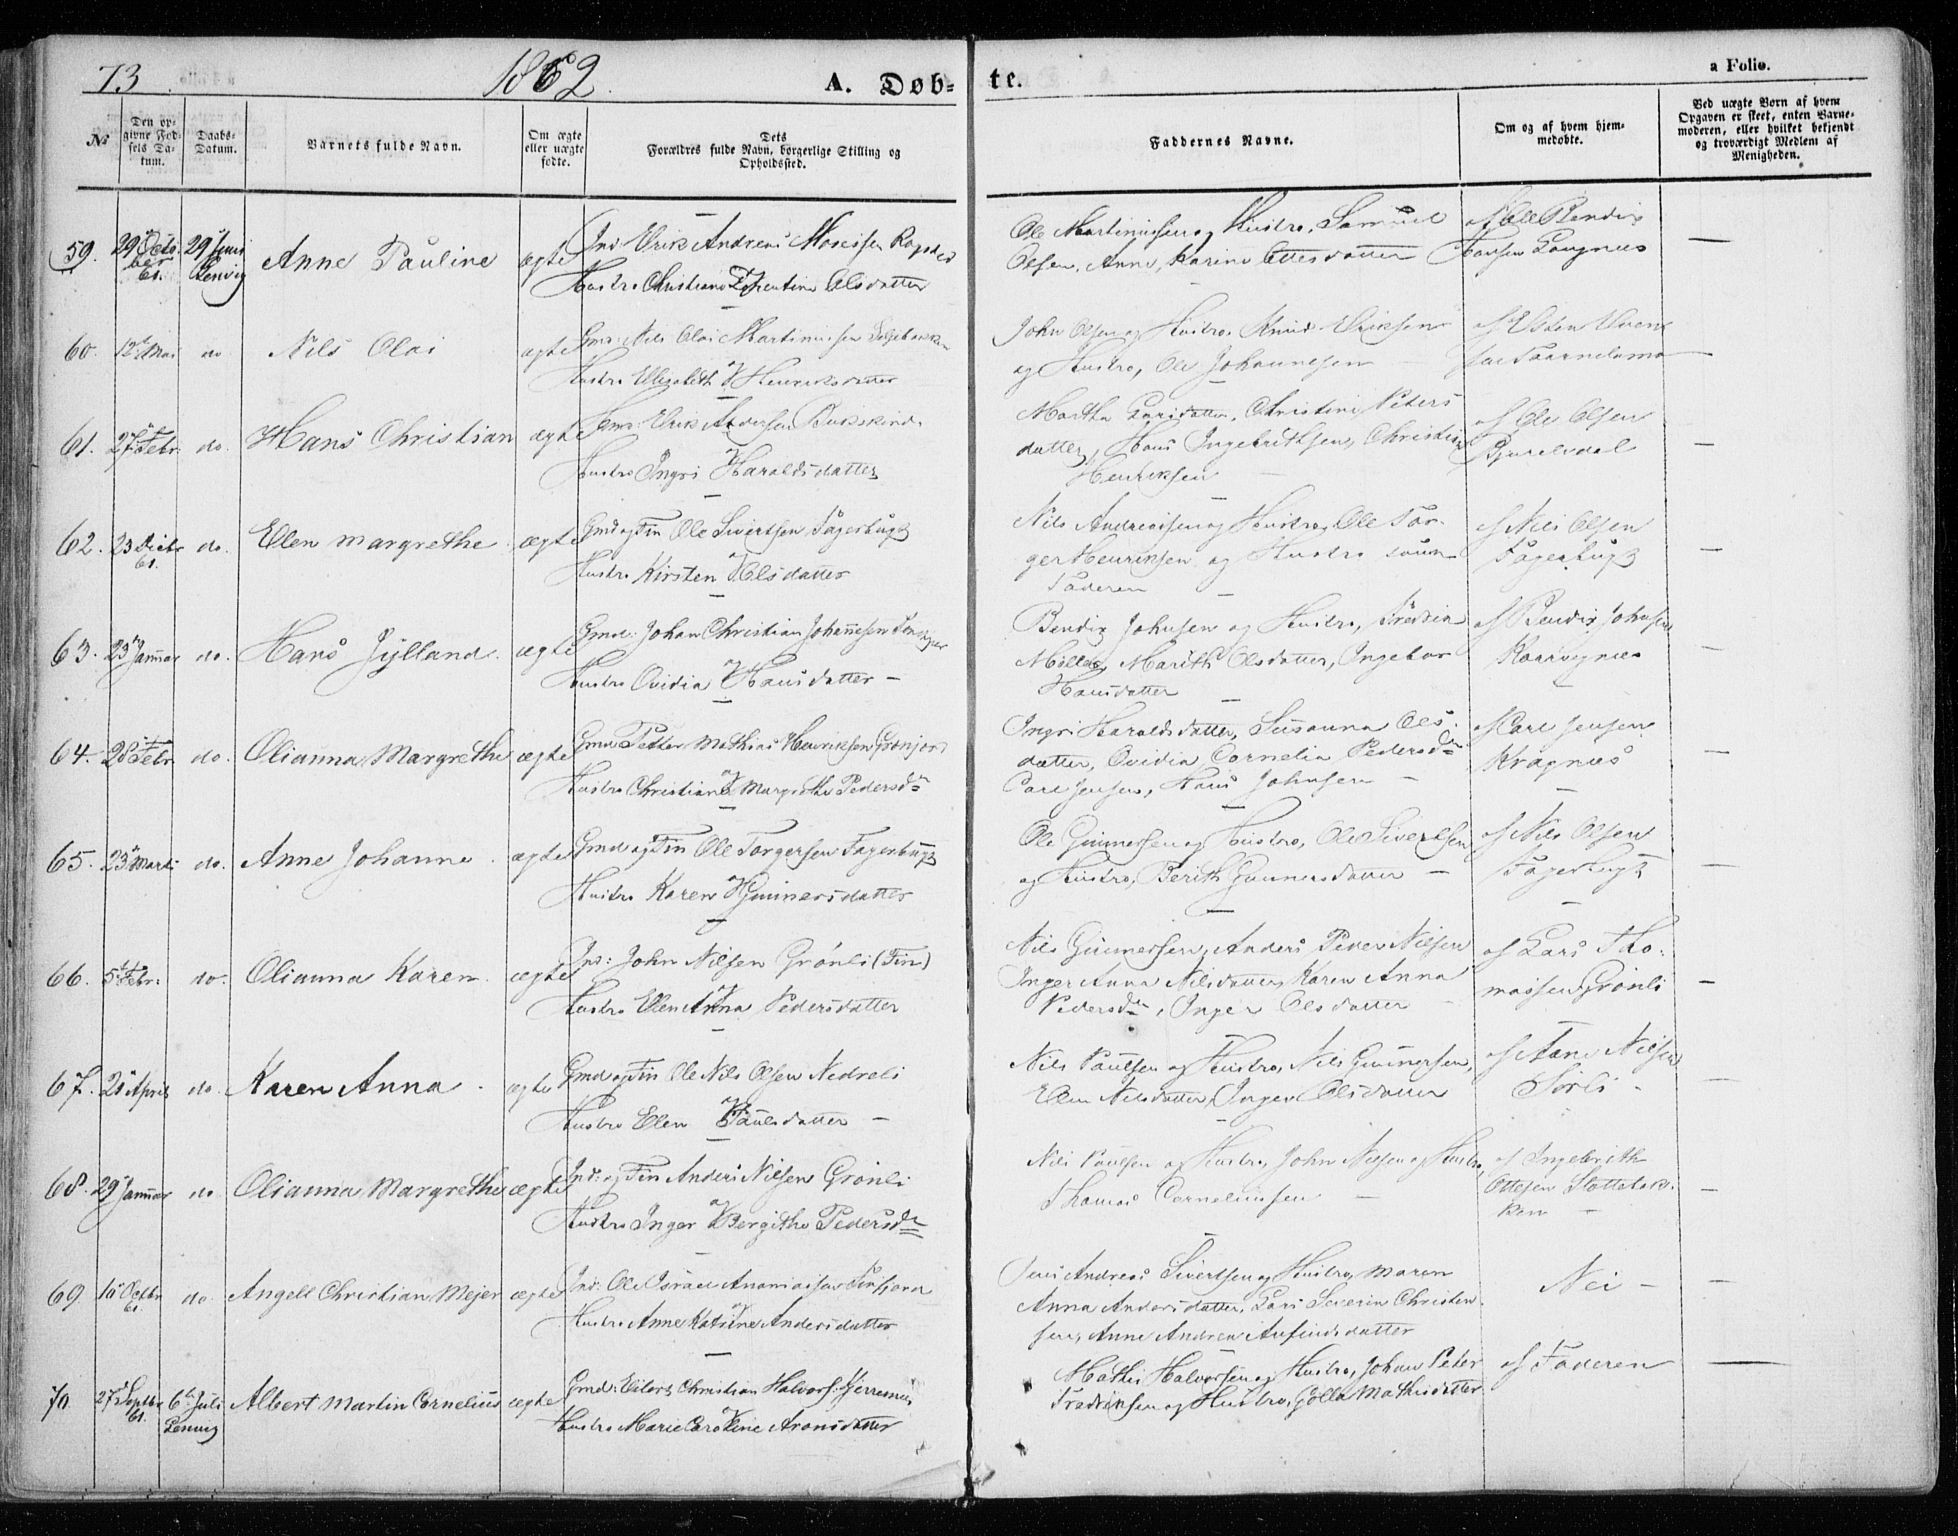 73
1862.
A. Døb-
te.
a Folio.
№
Den op-
givne Fød-
sels Da-
tum.
Daabs-
Datum.
Barnets fulde Navn.
Om ægte
eller uægte
fødte.
Dets
Forældres fulde Navn, borgerlige Stilling og
Opholdssted.
Faddernes Navne.
Om og af hvem hjem-
medøbte.
Ved uægte Børn af hvem
Opgaven er skeet, enten Barne-
moderen, eller hvilket bekjendt
og troværdigt Medlem af
Menigheden.
59. 29 Octo-
ber
61. 29 Juni
Lenvig Anne Pauline ægte Ind: Erik Andreas
Hustro Christiane Olsdatter
Ole Martinussen og Hustro, Samuel
Olsen, Anne Karine Ottesdatter
af Ole Bendix
Hansen
60. 12 Mai do Nils Olai ægte Gmd: Nils Olai Martinussen
Hustro Elisabeth Henriksdatter
John Olsen og Hustro, Knud Eriksen
og Hustro, Ole Johannessen
af
61. 27 Febr. do. Hans Christian ægte Gmd: Erik Andersen Bukskind
Hustro Ingri Haraldsdatter
Martha Larsdatter, Christine Peders
datter, Hans Ingebrithsen, Christian
Henriksen
af Ole Olsen
62. 23 Decbr
61. do. Ellen Margrethe ægte Gmd og Fin Ole Sivertsen Fagerbugt
Hustro Kirsten Olsdatter
Nils Andreassen og Hustro, Ole Tor-
ger Henriksen og Hustro samt
Faderen
af Nils Olsen
Fagerbugt
63. 23 Januar do. Hans Jylland. ægte Gmd: Johan Christian Johannesen
Hustro Ovidia Hansdatter
Bendix Johnsen og Hustro, Fredrik
Møller, Marith Olsdatter, Ingebor
Hansdatter
af Bendix Johnsen
64. 28 Febr do. Olianna Margrethe ægte Gmd Petter Mathias Henriksen Grønjord
Hustro Christiane Margrethe Pedersdr
Ingri Haraldsdatter, Susanna Ols-
datter, Ovidia Cornelia Pedersdr
Carl Jensen, Hans Johnsen
af Carl Jensen
Kragnæs
65. 23 Marts do. Anne Johanne ægte Gmd og Fin Ole Torgersen Fagerbugt
Hustro Karen Gunnersdatter
Ole Gunnersen og Hustro, Ole Sivertsen
og Hustro, Berith Gunnersdatter
af Nils Olsen
Fagerbugt
66. 5 Febr: do. Olianna Karen ægte Ind: John Nilsen Grønli (Fin)
Hustro Ellen Anna Pedersdatter
Nils Gunnersen, Anders Peder Nilsen
Inger Anna Nilsdatter, Karen Anna
Pedersdr, Inger Olsdatter
af Lars Tho-
massen Grønli
67. April do. Karen Anna ægte Gmd og Fin Ole Nils Olsen Nedreli
Hustro Elen Paulsdatter
Nils Paulsen og Hustro, Nils Gunnersen,
Elen Nilsdatter, Inger Olsdatter
af Nilsen
Sørli
68. 29 Januar do Olianna Margrethe ægte Ind: og Fin Anders Nilsen Grønli
Hustro Inger Bergithe Pedersdr
Nils Paulsen og Hustro, John Nilsen og Hustro,
Thomas Corneliussen
af Ingebrith
Ottesen Slottebak-
ken
69 10 Octbr
61. do. Angell Christian Mejer ægte Ind: Ole Israel Ananiassen Finfjord
Hustro Anne Katrine Andersdatter
Jens Andreas Sivertsen og Hustro, Maren
Anna Andersdatter, Lars Severin Christen-
sen, Anne Andrea Anfindsdatter
Nei
70 27 Septbr
61. 6 Juli
Lenvig Albert Martin Cornelius ægte Gmd: Eilert Christian Halvors:
Hustro Marie Caroline Aronsdatter
Mathis Halvorsen og Hustro, Johan Peter
Fredriksen og Hustro, Golla Mathisdatter
af Faderen